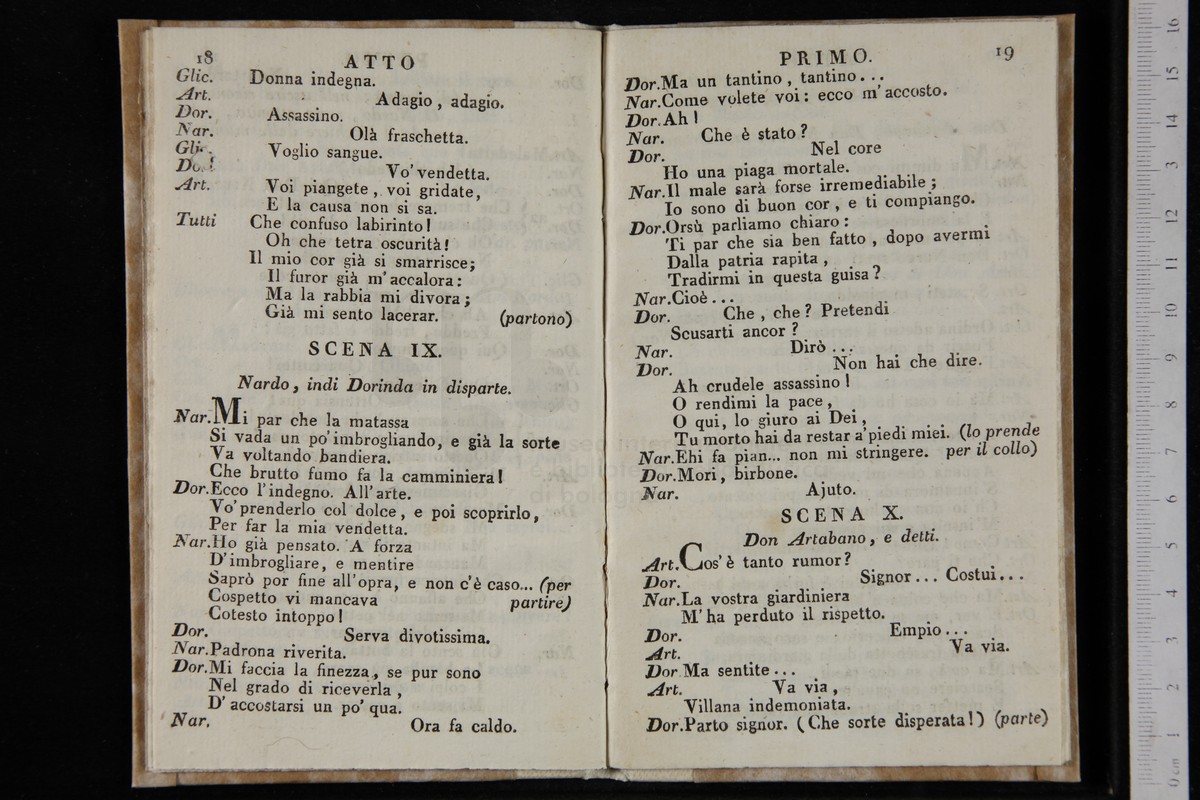 18
ATTO
Glic. Donna indegna.
Art. Adagio , adagio.
Dor. Assassino.
Nar. Olà fraschetta.
Gli. Voglio sangue.
Do. Vo' vendetta.
Art. Voi piangete , voi gridate,
E la causa non si sa.
Tutti Che confuso labirinto!
Oh che tetra oscurità!
Il mio cor già si smarrisce;
Il furor già m'accalora:
Ma la rabbia mi divora;
Già mi sento lacerar. (partono)
SCENA IX.
Nardo, indi Dorinda in disparte.
Nar. Mi par che la matassa
Si vada un po' imbrogliando, e già la sorte
Va voltando bandiera.
Che brutto fumo fa la camminiera!
Dor. Ecco l'indegno. All'arte.
Vo' prenderlo col dolce, e poi scoprirlo,
Per far la mia vendetta.
Nar. Ho già pensato. A forza
D'imbrogliare, e mentire
Saprò por fine all'opra, e non c'è caso... (per
Cospetto vi mancava partire)
Cotesto intoppo!
Dor. Serva divotissima.
Nar. Padrona riverita.
Dor. Mi faccia la finezza, se pur sono
Nel grado di riceverla ,
D'accostarsi un po' qua.
Nar. Ora fa caldo.
PRIMO.
19
Dor. Ma un tantino , tantino...
Nar. Come volete voi: ecco m'accosto.
Dor. Ah!
Nar. Che è stato?
Dor. Nel core
Ho una piaga mortale.
Nar. Il male sarà forse irremediabile;
Io sono di buon cor, e ti compiango.
Dor. Orsù parliamo chiaro:
Ti par che sia ben fatto , dopo avermi
Dalla patria rapita,
Tradirmi in questa guisa?
Nar. Cioè...
Dor. Che, che? Pretendi
Scusarti ancor?
Nar. Dirò...
Dor. Non hai che dire.
Ah crudele assassino!
O rendimi la pace,
O qui, lo giuro ai Dei,
Tu morto hai da restar a' piedi miei. (lo prende
Nar. Ehi fa pian... non mi stringere. per il collo)
Dor. Mori, birbone.
Nar. Ajuto.
SCENA X.
Don Artabano, e detti.
Art. Cos'è tanto rumor?
Dor. Signor... Costui...
Nar. La vostra giardiniera
M'ha perduto il rispetto.
Dor. Empio...
Art. Va via.
Dor Ma sentite...
Art. Va via,
Villana indemoniata.
Dor. Parto signor. (Che sorte disperata!) (parte)